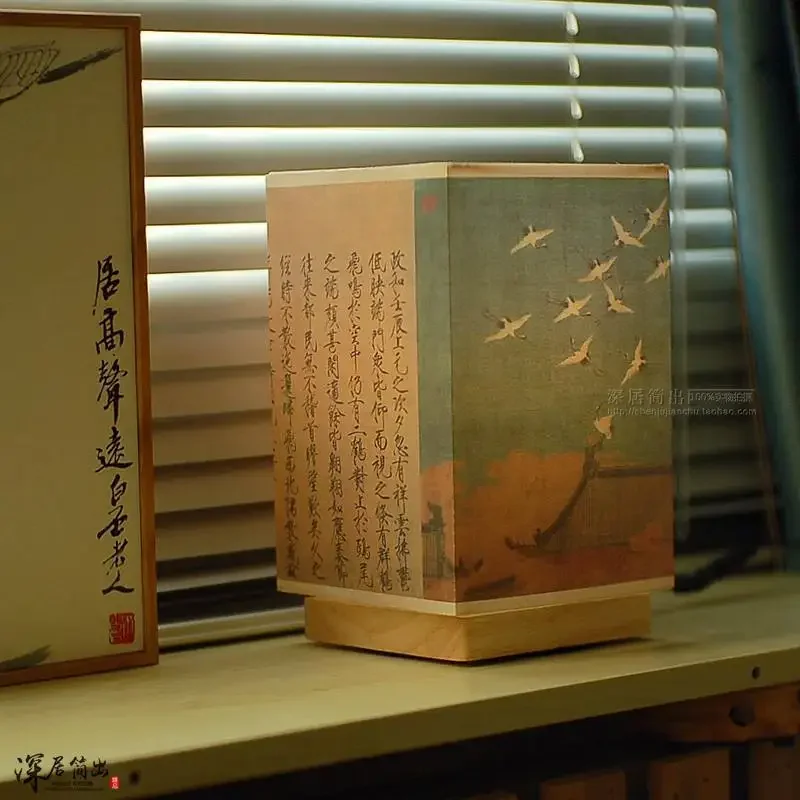 居高聲遠白石老人
政和壬辰上元之次夕忽有祥雲拂鬱
低映端門衆皆仰而視之倏有群鶴
飛鳴於空中仍有二鶴對止於鴟尾
之端頗甚閑適餘皆翱翔如應奏節
往來都民無不稽首瞻望歎異久之
經時不散迤邐歸飛西北隅散感茲
深居简出 100%实物拍摄
深居简出